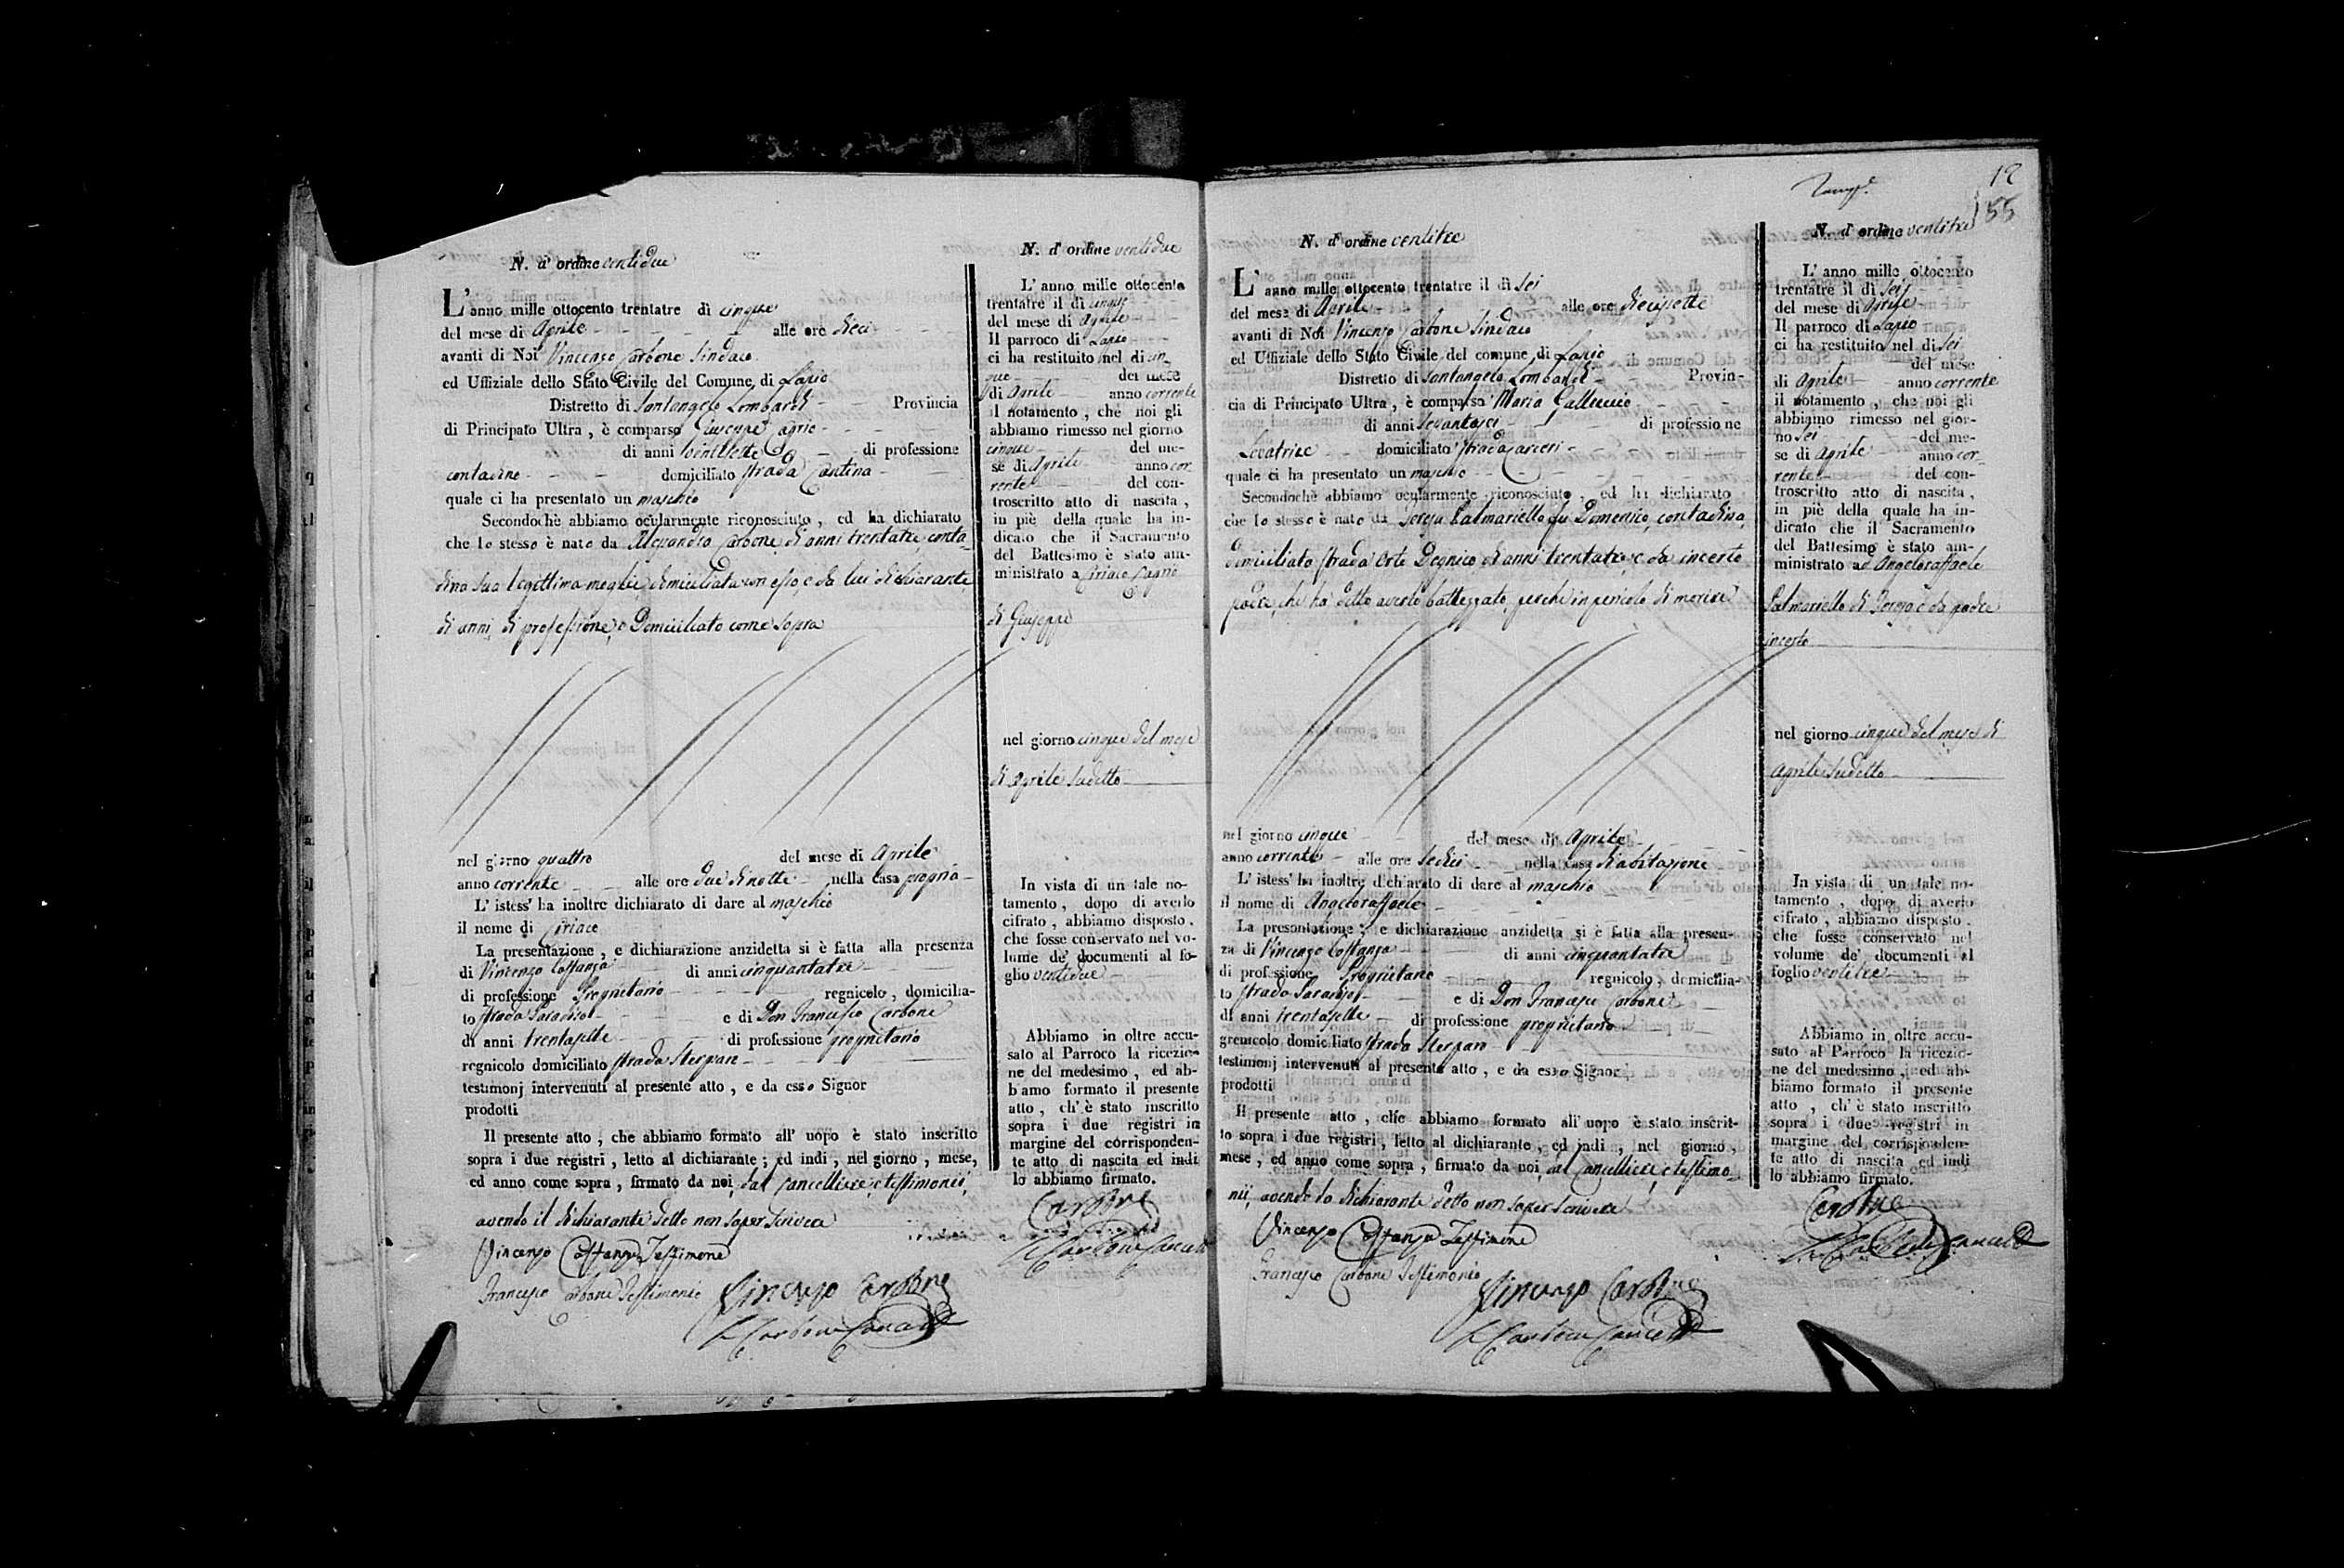 N. d' ordine ventidue
L' anno mille ottocento trentatre dì cinque
del mese di Aprile alle ore dieci
avanti di Noi Vincenzo Carbone Sindaco
ed Uffiziale dello Stato Civile del Comune di Lapio
Distretto di Santangelo Lombardi Provincia
di Principato Ultra , è comparso Giuseppe
di anni ventisette di professione
contadino domiciliato strada Cantina
quale ci ha presentato un maschio
Secondochè abbiamo ocularmente riconosciuto , ed ha dichiarato
che lo stesso è nato da Alesandra Carbone di anni trentatre, conta-
dina sua legittima moglie, domiciliata con esso, e da lui dichiarante
di anni, di professione, e Domiciliato come sopra
nel giorno quattro del mese di Aprile
anno corrente alle ore due di notte nella casa propria
L' istess' ha inoltre dichiarato di dare al maschio
il nome di Ciriaco
La presentazione , e dichiarazione anzidetta si è fatta alla presenza
di Vincenzo Costanza di anni cinquantatre
di professione Proprietario regnicolo , domicilia-
to strada Paradiso e di Don Francesco Carbone
di anni trentasette di professione proprietario
regnicolo domiciliato strada Sterpan
testimonj intervenuti al presente atto , e da esso Signor
prodotti
Il presente atto , che abbiamo formato all' uopo è stato inscritto
sopra i due registri , letto al dichiarante ; ed indi , nel giorno , mese,
ed anno come sopra , firmato da noi, dal Cancelliere, e testimonii,
avendo il dichiarante detto non saper scrivere
Vincenzo Costanza Testimone
Francesco Carbone Testimonio Vincenzo Carbone
Carbone Cancell
N. d' ordine ventidue
L' anno mille ottocento
trentatre il dì cinque
del mese di Aprile
Il parroco di Lapio
ci ha restituito nel dì cin-
que del mese
di Aprile anno corrente
il notamento , che noi gli
abbiamo rimesso nel giorno
cinque del me-
se di Aprile anno cor-
rente del con-
troscritto atto di nascita ,
in piè della quale ha in-
dicato che il Sacramento
del Battesimo è stato am-
ministrato a Ciriaco
di Giuseppe
nel giorno cinque del mese
di Aprile sudetto
In vista di un tale no-
tamento , dopo di averlo
cifrato , abbiamo disposto ,
che fosse conservato nel vo-
lume de' documenti al fo-
glio ventidue
Abbiamo in oltre accu-
sato al Parroco la ricezio-
ne del medesimo , ed ab-
biamo formato il presente
atto , ch' è stato inscritto
sopra i due registri in
margine del corrisponden-
te atto di nascita ed indi
lo abbiamo firmato.
Carbone
Carbone Cancell
12
155
N. d' ordine ventitre
L' anno mille ottocento trentatre il dì sei
del mese di Aprile alle ore diecisette
avanti di Noi Vincenzo Carbone Sindaco
ed Uffiziale dello Stato Civile del comune di Lapio
Distretto di Santangelo Lombardi Provin-
cia di Principato Ultra , è comparsa Maria Galluccio
di anni sessantasei di professione
Levatrice domiciliato strada Carceri
quale ci ha presentato un maschio
Secondochè abbiamo ocularmente riconosciuto , ed ha dichiarato
che lo stesso è nato da Teresa Palmariello fu Domenico, contadina,
domiciliata strada Orto di anni trentatre, e da incerto
padre, che ha detto averlo battezzato, perchè in pericolo di morire
nel giorno cinque del mese di Aprile
anno corrente alle ore sedici nella casa di abitazione
L' istess' ha inoltre dichiarato di dare al maschio
il nome di Angeloraffaele
La presentazione , e dichiarazione anzidetta si è fatta alla presen-
za di Vincenzo Costanza di anni cinquantatre
di professione Proprietario regnicolo , domicilia-
to strada Paradiso e di Don Francesco Carbone
di anni trentasette di professione proprietario
regnicolo domiciliato strada Sterpan
testimonj intervenuti al presente atto , e da esso Signor
prodotti
Il presente atto , che abbiamo formato all' uopo è stato inscrit-
to sopra i due registri , letto al dichiarante , ed indi , nel giorno ,
mese , ed anno come sopra , firmato da noi, dal Cancelliere, e testimo-
nii, avendo la dichiarante detto non saper scrivere
Vincenzo Costanza Testimone
Francesco Carbone Testimonio Vincenzo Carbone
Carbone Cancell
N. d' ordine ventitre
L' anno mille ottocento
trentatre il dì sei
del mese di Aprile
Il parroco di Lapio
ci ha restituito nel dì sei
del mese
di Aprile anno corrente
il notamento , che noi gli
abbiamo rimesso nel gior-
no sei del me-
se di Aprile anno cor-
rente del con-
troscritto atto di nascita ,
in piè della quale ha in-
dicato che il Sacramento
del Battesimo è stato am-
ministrato ad Angeloraffaele
Palmariello di Teresa e da padre
incerto
nel giorno cinque del mese di
Aprile sudetto
In vista di un tale no-
tamento , dopo di averlo
cifrato , abbiamo disposto ,
che fosse conservato nel
volume de' documenti al
foglio ventitre
Abbiamo in oltre accu-
sato al Parroco la ricezio-
ne del medesimo , ed ab-
biamo formato il presente
atto , ch' è stato inscritto
sopra i due registri in
margine del corrisponden-
te atto di nascita ed indi
lo abbiamo firmato.
Carbone
Carbone Cancell